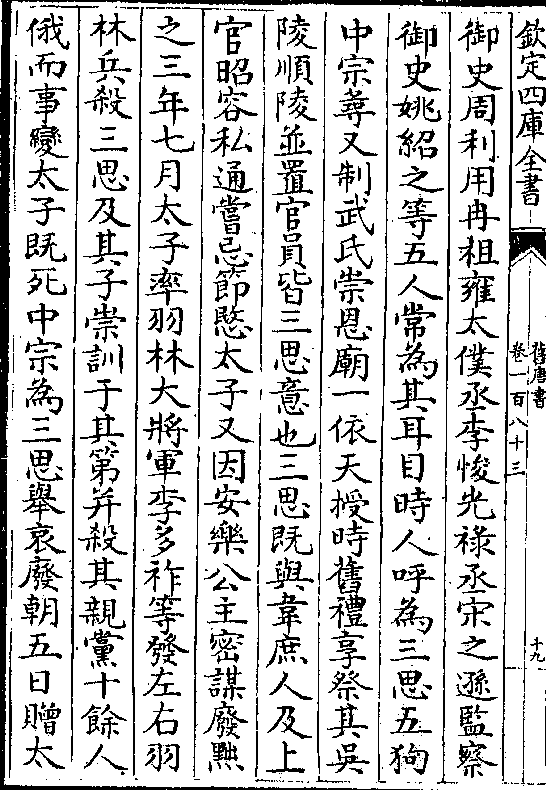 欽定四庫全書
舊唐書
卷一百八十三
十九
御史周利用冉祖雍太僕丞李悛光祿丞宋之遜監察
御史姚紹之等五人常為其耳目時人呼為三思五狗
中宗尋又制武氏崇恩廟一依天授時舊禮享祭其吳
陵順陵並置官員皆三思意也三思既與韋庶人及上
官昭容私通嘗忌節愍太子又因安樂公主密謀廢黜
之三年七月太子率羽林大將軍李多祚等發左右羽
林兵殺三思及其子崇訓于其第并殺其親黨十餘人
俄而事變太子既死中宗為三思舉哀廢朝五日贈太